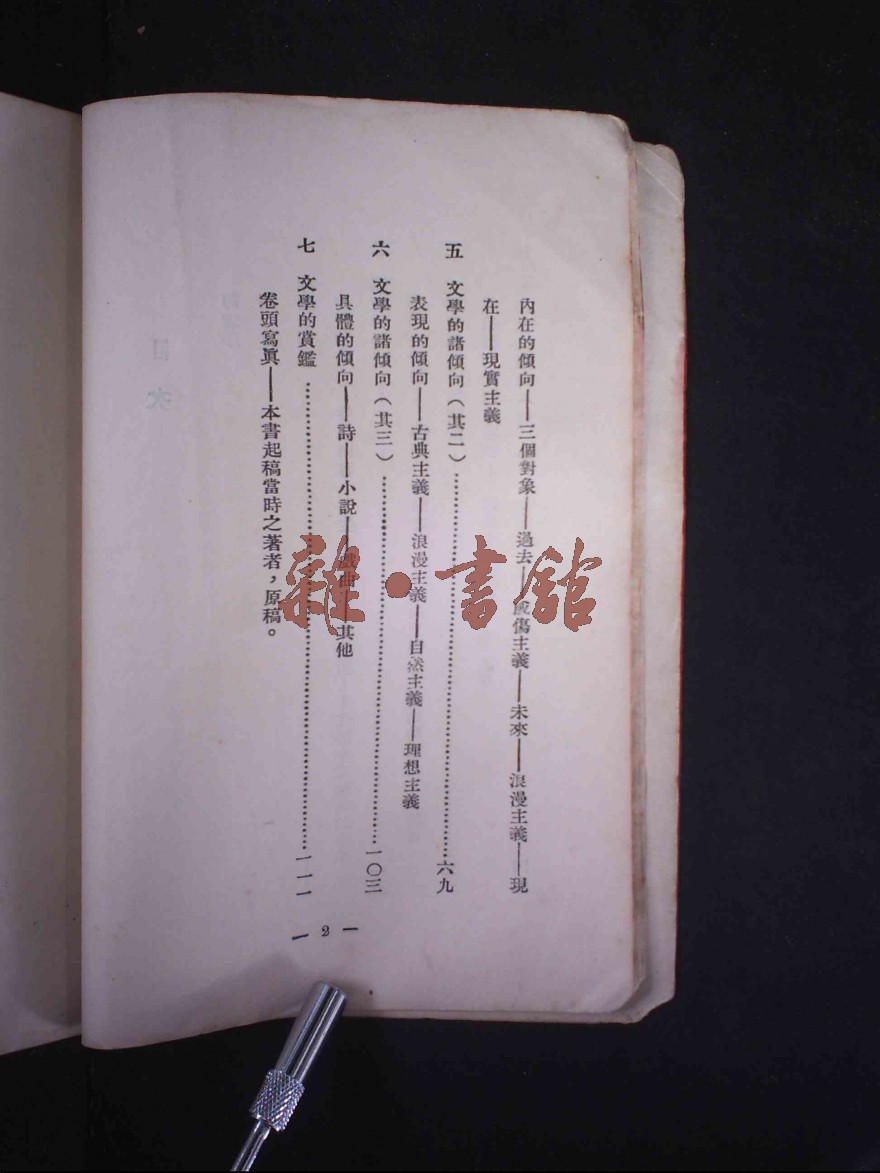 內在的傾向——三個對象——過去——感傷主義——未來——浪漫主義——現
在——現實主義
五　文學的諸傾向（其二）……六九
表現的傾向——古典主義——浪漫主義——自然主義——理想主義
六　文學的諸傾向（其三）……一〇三
具體的傾向——詩——小說——戲曲——其他
七　文學的賞鑑……一一一
卷頭寫眞——本書起稿當時之著者，原稿。
— 2 —
雜·書館
目次